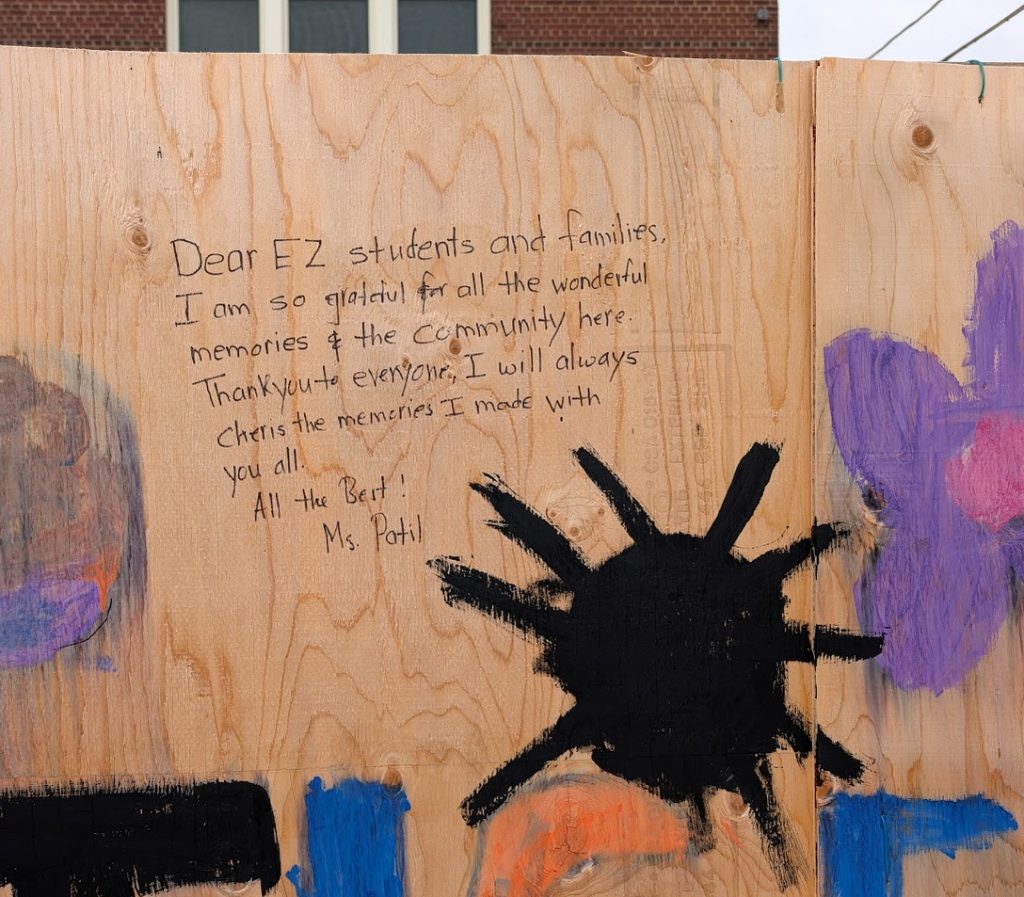 Dear EZ students and families,
I am so grateful for all the wonderful
memories & the community here.
Thankyou to everyone, I will always
Cheris the memories I made with
you all.
All the Best !
Ms. Patil